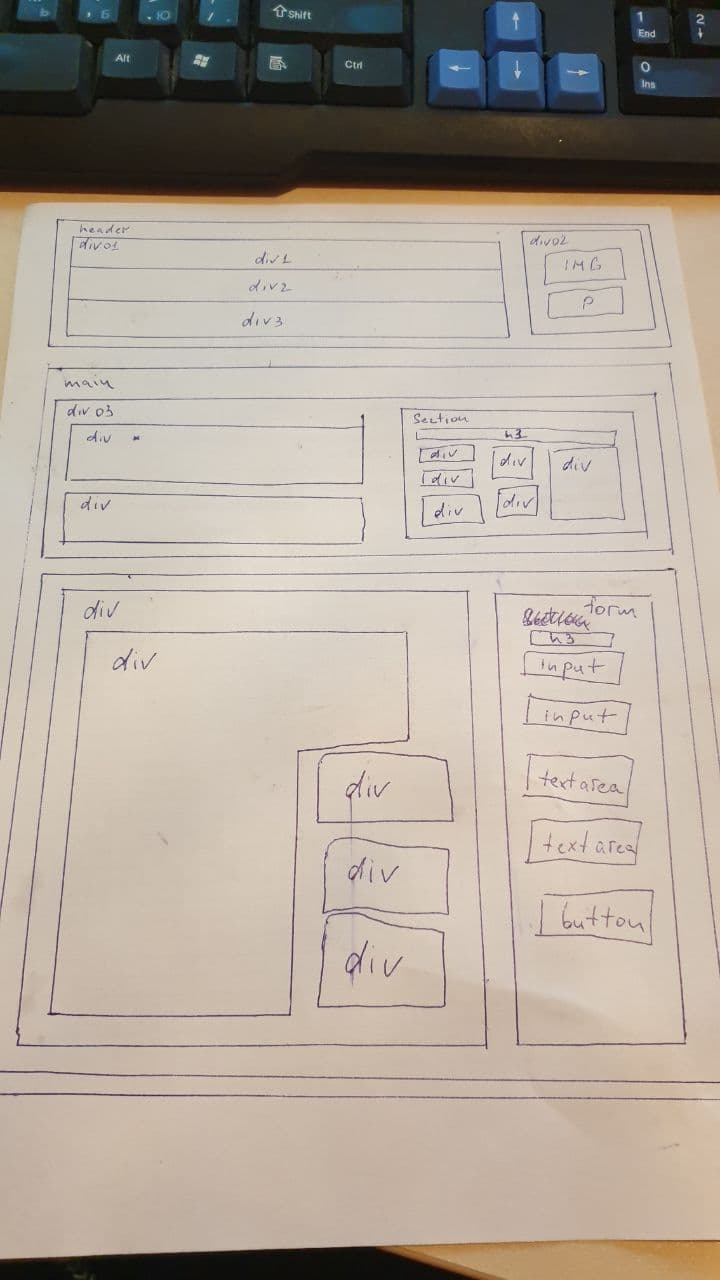 ь
, Б
. Ю
/ .
⇧Shift
1
End
2
↓
Alt
Ctrl
↑
←
↓
→
0
Ins
header
div01
div1
div2
div3
div02
IMG
P
main
div 03
div
div
Section
h3
div
div
div
div
div
div
div
div
form
h3
input
input
textarea
textarea
button
div
div
div